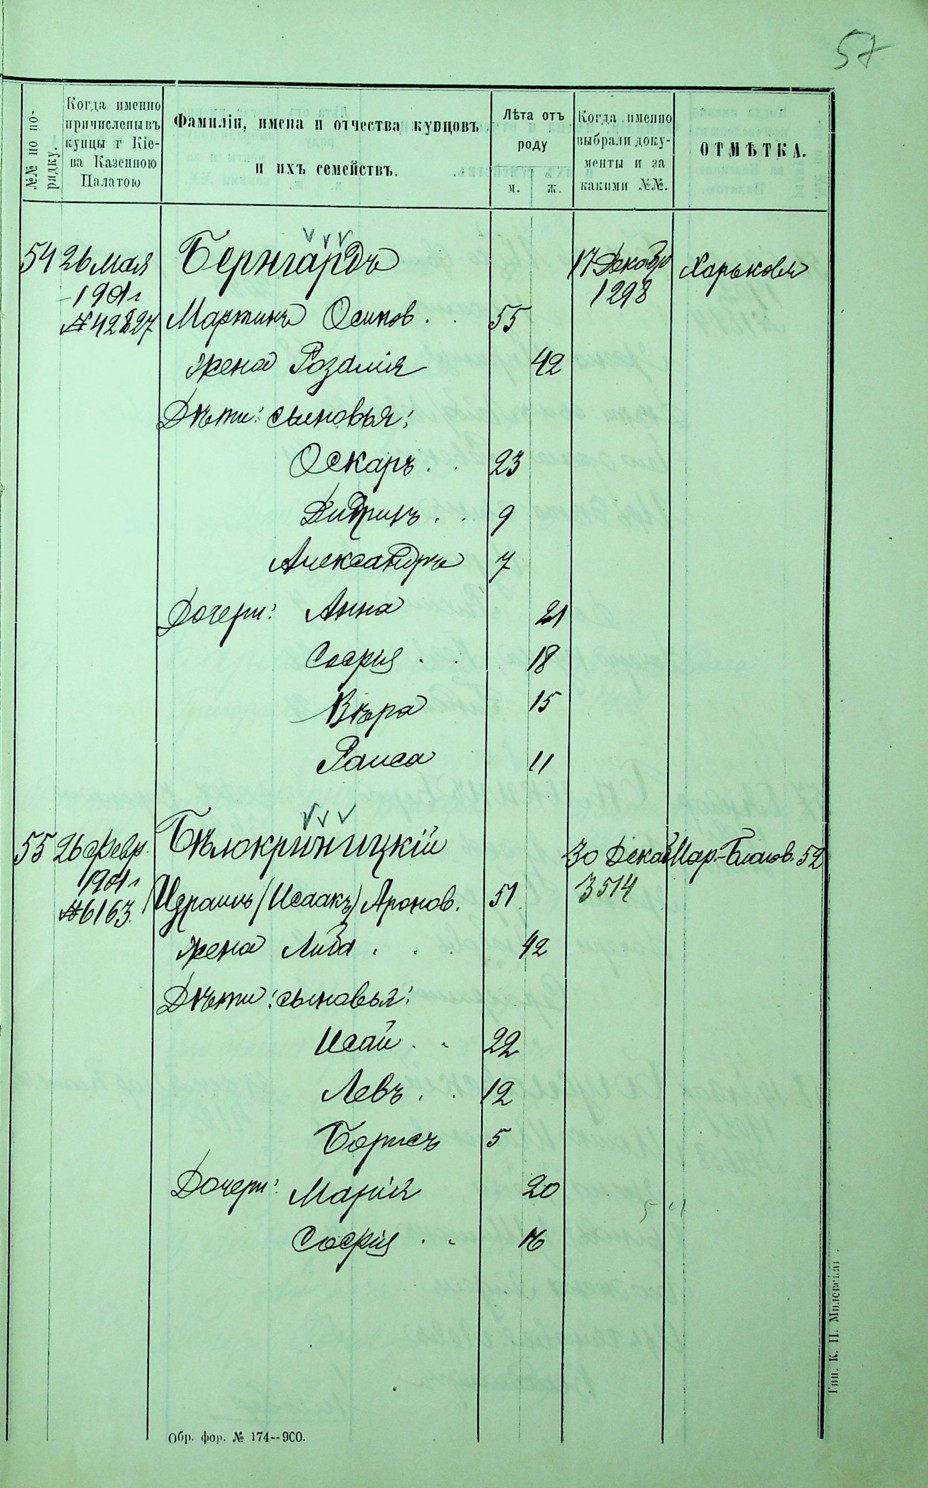 57
№№ по по-
рядку.
Когда именно
причислены въ
купцы г Кіе-
ва Казенною
Палатою
Фамиліи, имена и отчества купцовъ
и ихъ семействъ.
Лѣта отъ
роду
м. ж.
Когда именно
выбрали доку-
менты и за
какими №№.
ОТМѢТКА.
54 26 Мая Бернгардъ 17 Декабр Харьковъ
1901г 1298
Мартинъ Осипов. 55
жена Розалія 42
Дѣти: сыновья:
Оскаръ 23
9
Александръ 7
Дочери: Анна 21
Софія 18
Вѣра 15
Раиса 11
55 26 февр. Бѣлокриницкій 30 Декаб Мар.-Благов. 52
1901г 3514
№6163 Израиль (Исаакъ) Аронов. 51
жена Либа 42
Дѣти: сыновья:
Исай 22
Левъ 12
Борисъ 5
Дочери: Марія 20
Софія 16
Обр. фор. № 174--900.
Тип. К. Н. Милевскаг.